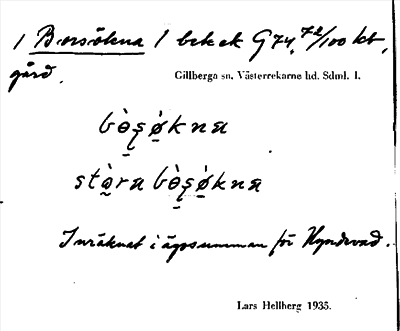 1 Borsökna 1 bek ek G 74, 72/100 kt,
gård.
Gillberga sn. Västerrekarne hd. Sdml. 1.
bò̱ʂö́kna
stò̱ra bò̱ʂö́kna
Inräknat i ägosumman för Hyndevad.
Lars Hellberg 1935.